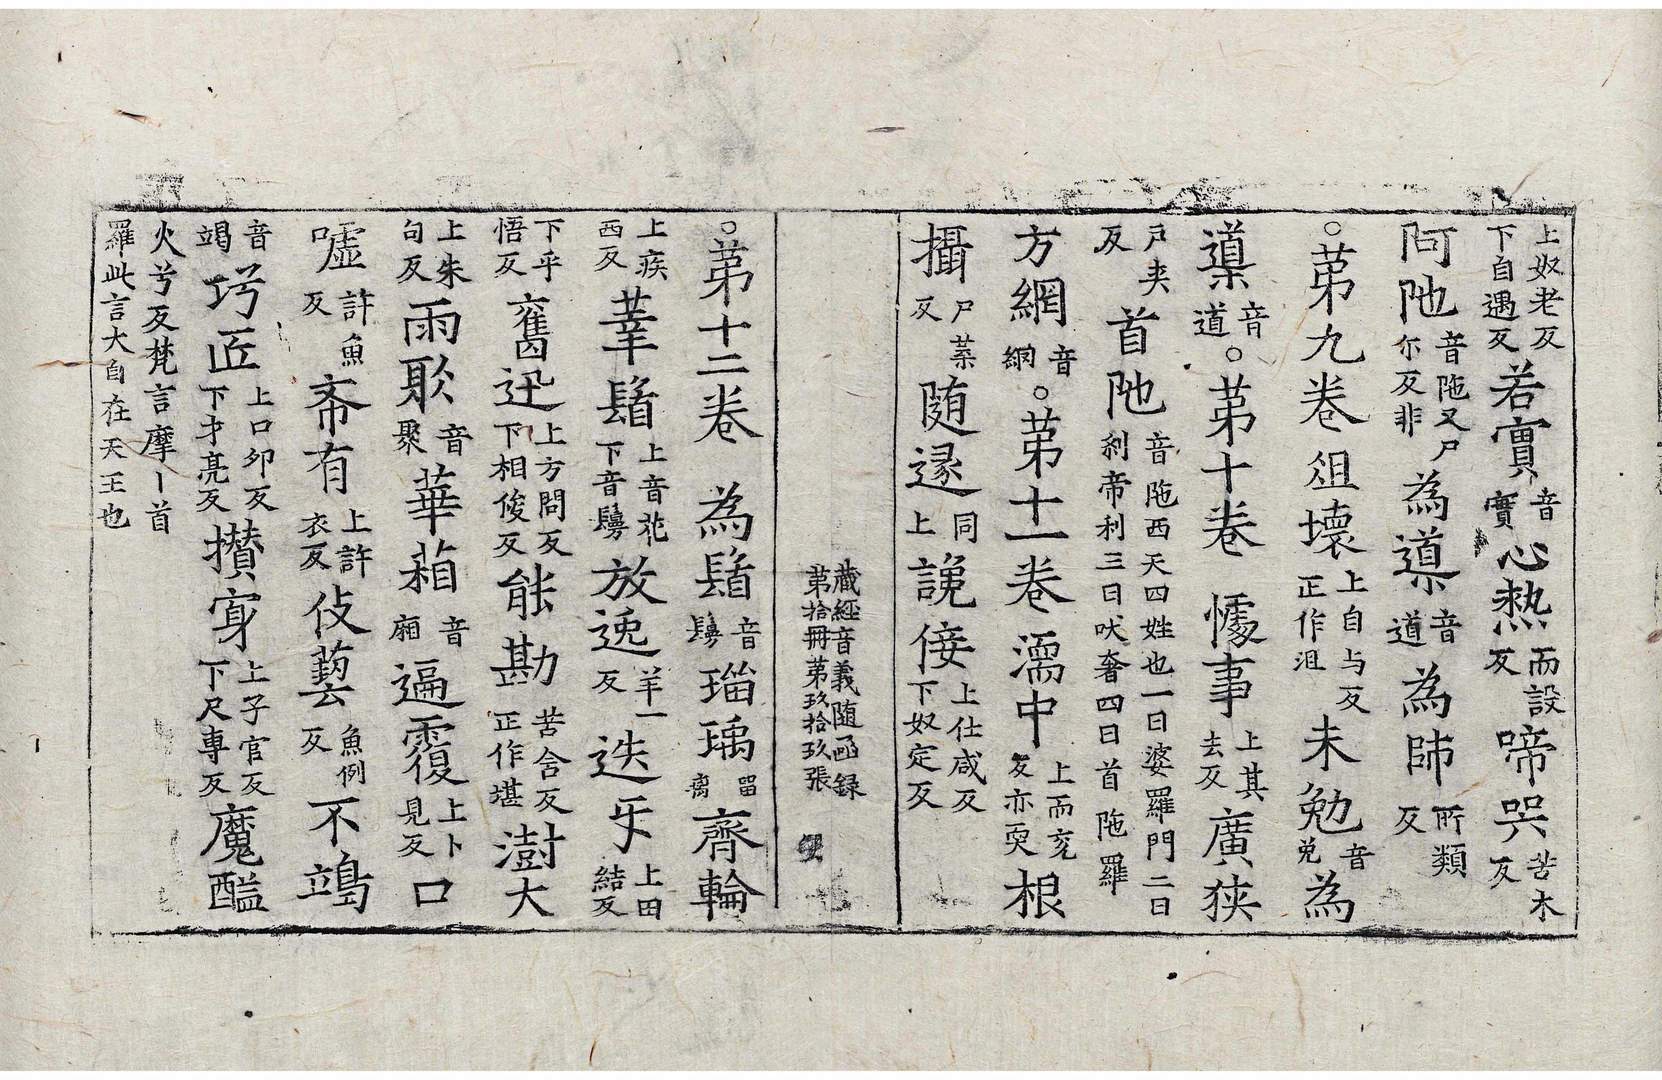 上奴老反下自遇反若實音實心熱而設反啼哭苦木反
阿陁音陁又尸尓反非為導音道為師所類反
○第九卷俎壞上自与反正作沮未勉音免為
導音道○第十卷懅事上其去反廣狹
戸夹反首陁音陁西天四姓也一曰婆羅門二曰刹帝利三曰吠奢四曰首陁羅
方網音網○第十一卷濡中上而兖反亦耎根
攝尸葉反随縁同上䜛佞上仕咸反下奴定反
藏經音義随函録第拾冊第玖拾玖張
○第十二卷為鬚音鬚瑙瑀齊輪
上疾西反華鬚上音花下音鬚放逸羊一反迭牙上田結反
下乎悟反奮迅上方問反下相俊反能勘苦含反正作堪澍大
上朱句反雨聚音聚華葙音廂遍覆上卜見反口
嘘許魚反希有上許衣反伎藝魚例反不鵠
音竭巧匠上口卯反下才亮反攢穿上子官反下尺專反魔醯
火兮反梵言摩丨首羅此言大自在天王也